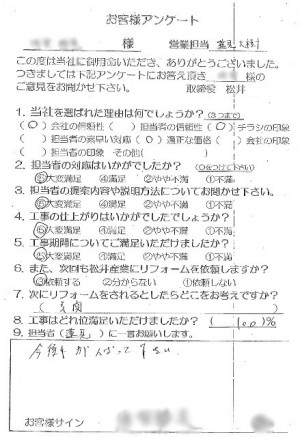 お客様アンケート
様 営業担当 蓮見
この度は当社に御用命いただき、ありがとうございました。
つきましては下記アンケートにお答え頂き 様の
ご意見をお聞かせ下さい。 取締役 松井
1. 当社を選ばれた理由は何でしょうか?(3つまで)
(○)会社の信頼性 ( )担当者の信頼性(○)チラシの印象
( )担当者の素早い対応(○)適正な価格 ( )会社の印象
( )担当者の印象 その他( )
2. 担当者の対応はいかがでしたか? (○をつけて下さい)
⑤大変満足 ④満足 ②やや不満 ①不満
3. 担当者の提案内容や説明方法についてお聞かせ下さい。
⑤大変満足 ④満足 ②やや不満 ①不満
4. 工事の仕上がりはいかがでしたでしょうか?
⑤大変満足 ④満足 ②やや不満 ①不満
5. 工事期間についてご満足いただけましたか?
⑤大変満足 ④満足 ②やや不満 ①不満
6. また、次回も松井産業にリフォームを依頼しますか?
③依頼する ②分からない ①依頼しない
7. 次にリフォームをされるとしたらどこをお考えですか?
( 玄関 )
8. 工事はどれ位満足いただけましたか?( 100 )%
9. 担当者(蓮見)に一言お願いします。
今後もがんばって下さい
お客様サイン